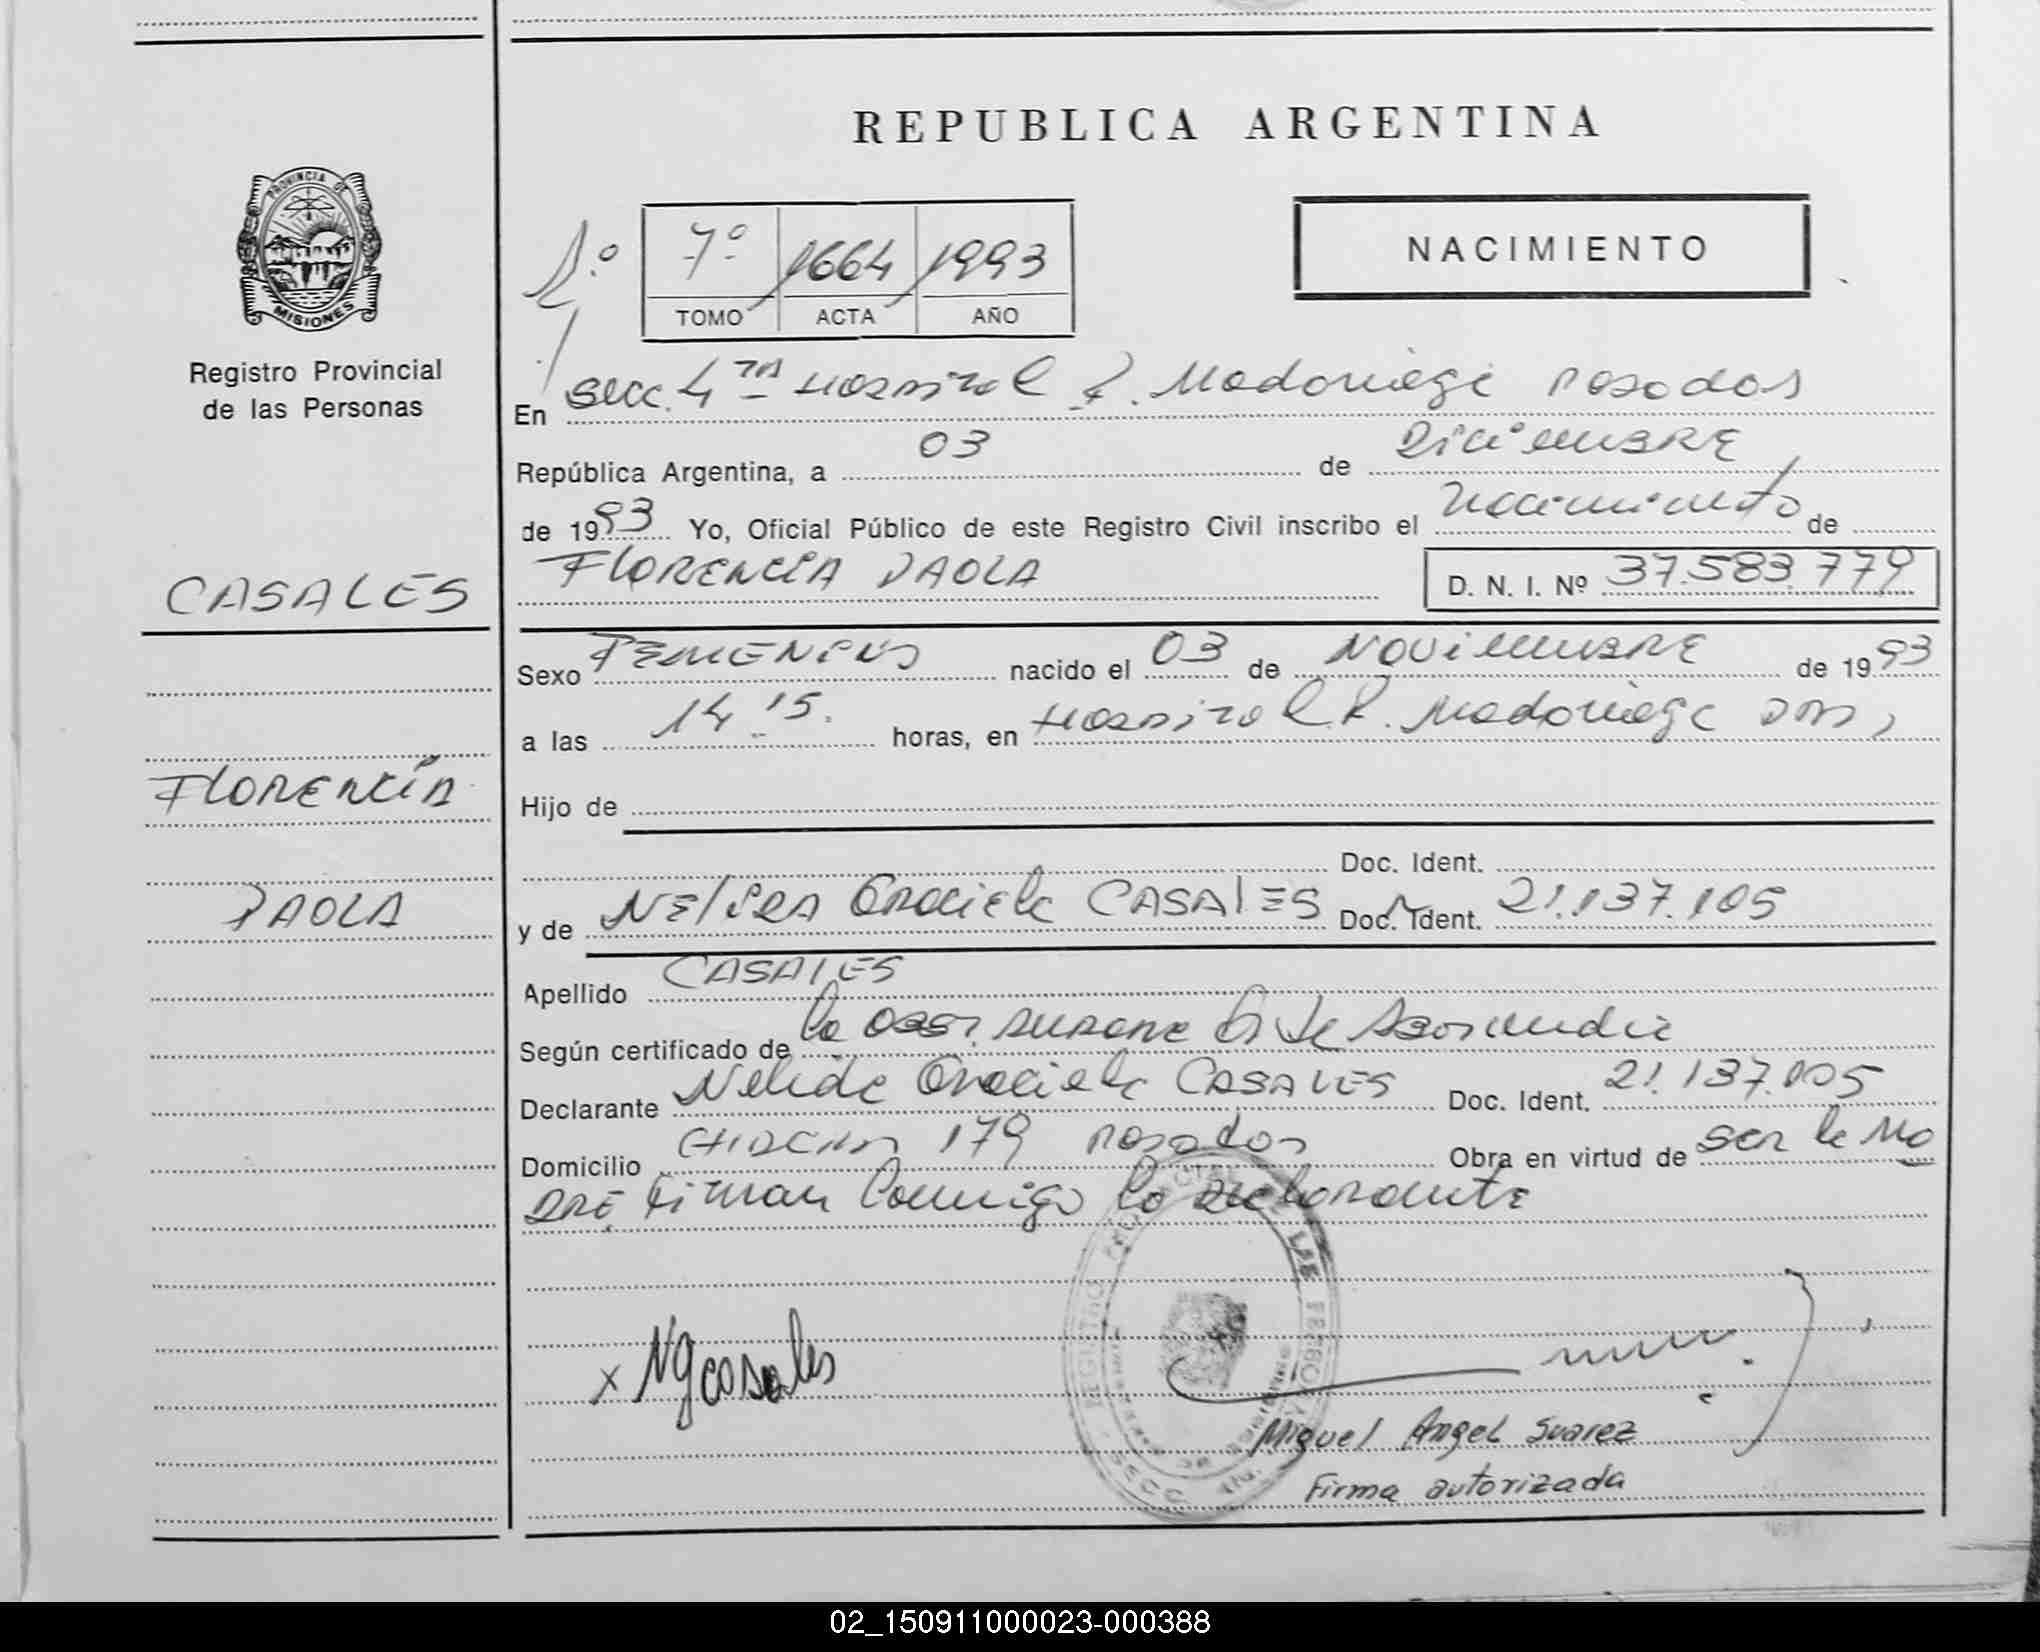 REPUBLICA ARGENTINA
PROVINCIA DE
MISIONES
Registro Provincial
de las Personas
1.º
7º 1664 1993
TOMO ACTA AÑO
NACIMIENTO
En Secc. 4 TA Hospital R. Madariaga Posadas
República Argentina, a 03 de Diciembre
de 1993 Yo, Oficial Público de este Registro Civil inscribo el nacimiento de
FLORENCIA PAOLA D. N. I. Nº 37.583.779
CASALES
Sexo FEMENINO nacido el 03 de NOVIEMBRE de 1993
a las 14 15. horas, en Hospital R. Madariaga
FLORENCIA
Hijo de
Doc. Ident.
PAOLA
y de NELIDA Graciela CASALES Doc. Ident. 21.137.105
Apellido CASALES
Según certificado de la Obst. Susana
Declarante Nelida Graciela CASALES Doc. Ident. 21.137.105
Domicilio 179 Posadas Obra en virtud de ser la Ma
DRE Firman Conmigo la declarante
x NgCasales
Miguel Angel Suarez
Firma autorizada
02_150911000023-000388